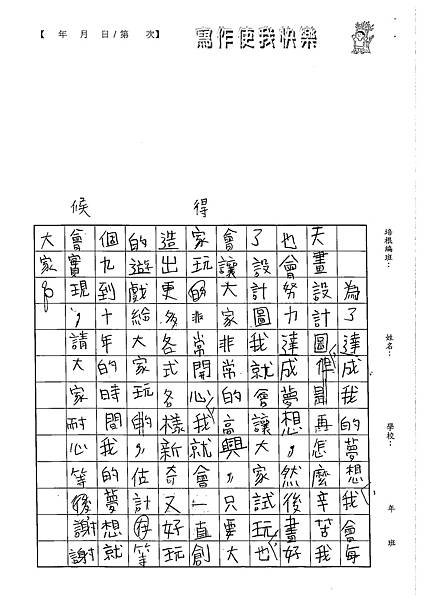 【 年 月 日/第 次】 寫作使我快樂
培根編班： 姓名： 學校： 年 班
候 得
為了達成我的夢想，我會每
天畫設計圖，但是再怎麼辛苦我
也會努力達成夢想，然後畫好
了設計圖我就會讓大家試玩，也
會讓大家非常的高興，只要大
家玩的非常開心，我就會一直創
造出更多各式各樣新奇又好玩
的遊戲給大家玩的，估計再等
個九到十年的時間我的夢想就
會實現，請大家耐心等後，謝謝
大家。